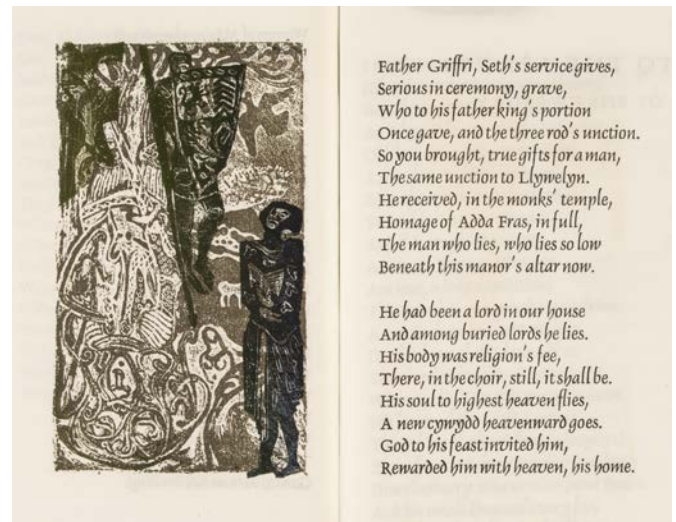 Father Griffri, Seth's service gives,
Serious in ceremony, grave,
Who to his father king's portion
Once gave, and the three rod's unction.
So you brought, true gifts for a man,
The same unction to Llywelyn.
He received, in the monks' temple,
Homage of Adda Fras, in full,
The man who lies, who lies so low
Beneath this manor's altar now.
He had been a lord in our house
And among buried lords he lies.
His body was religion's fee,
There, in the choir, still, it shall be.
His soul to highest heaven flies,
A new cywydd heavenward goes.
God to his feast invited him,
Rewarded him with heaven, his home.